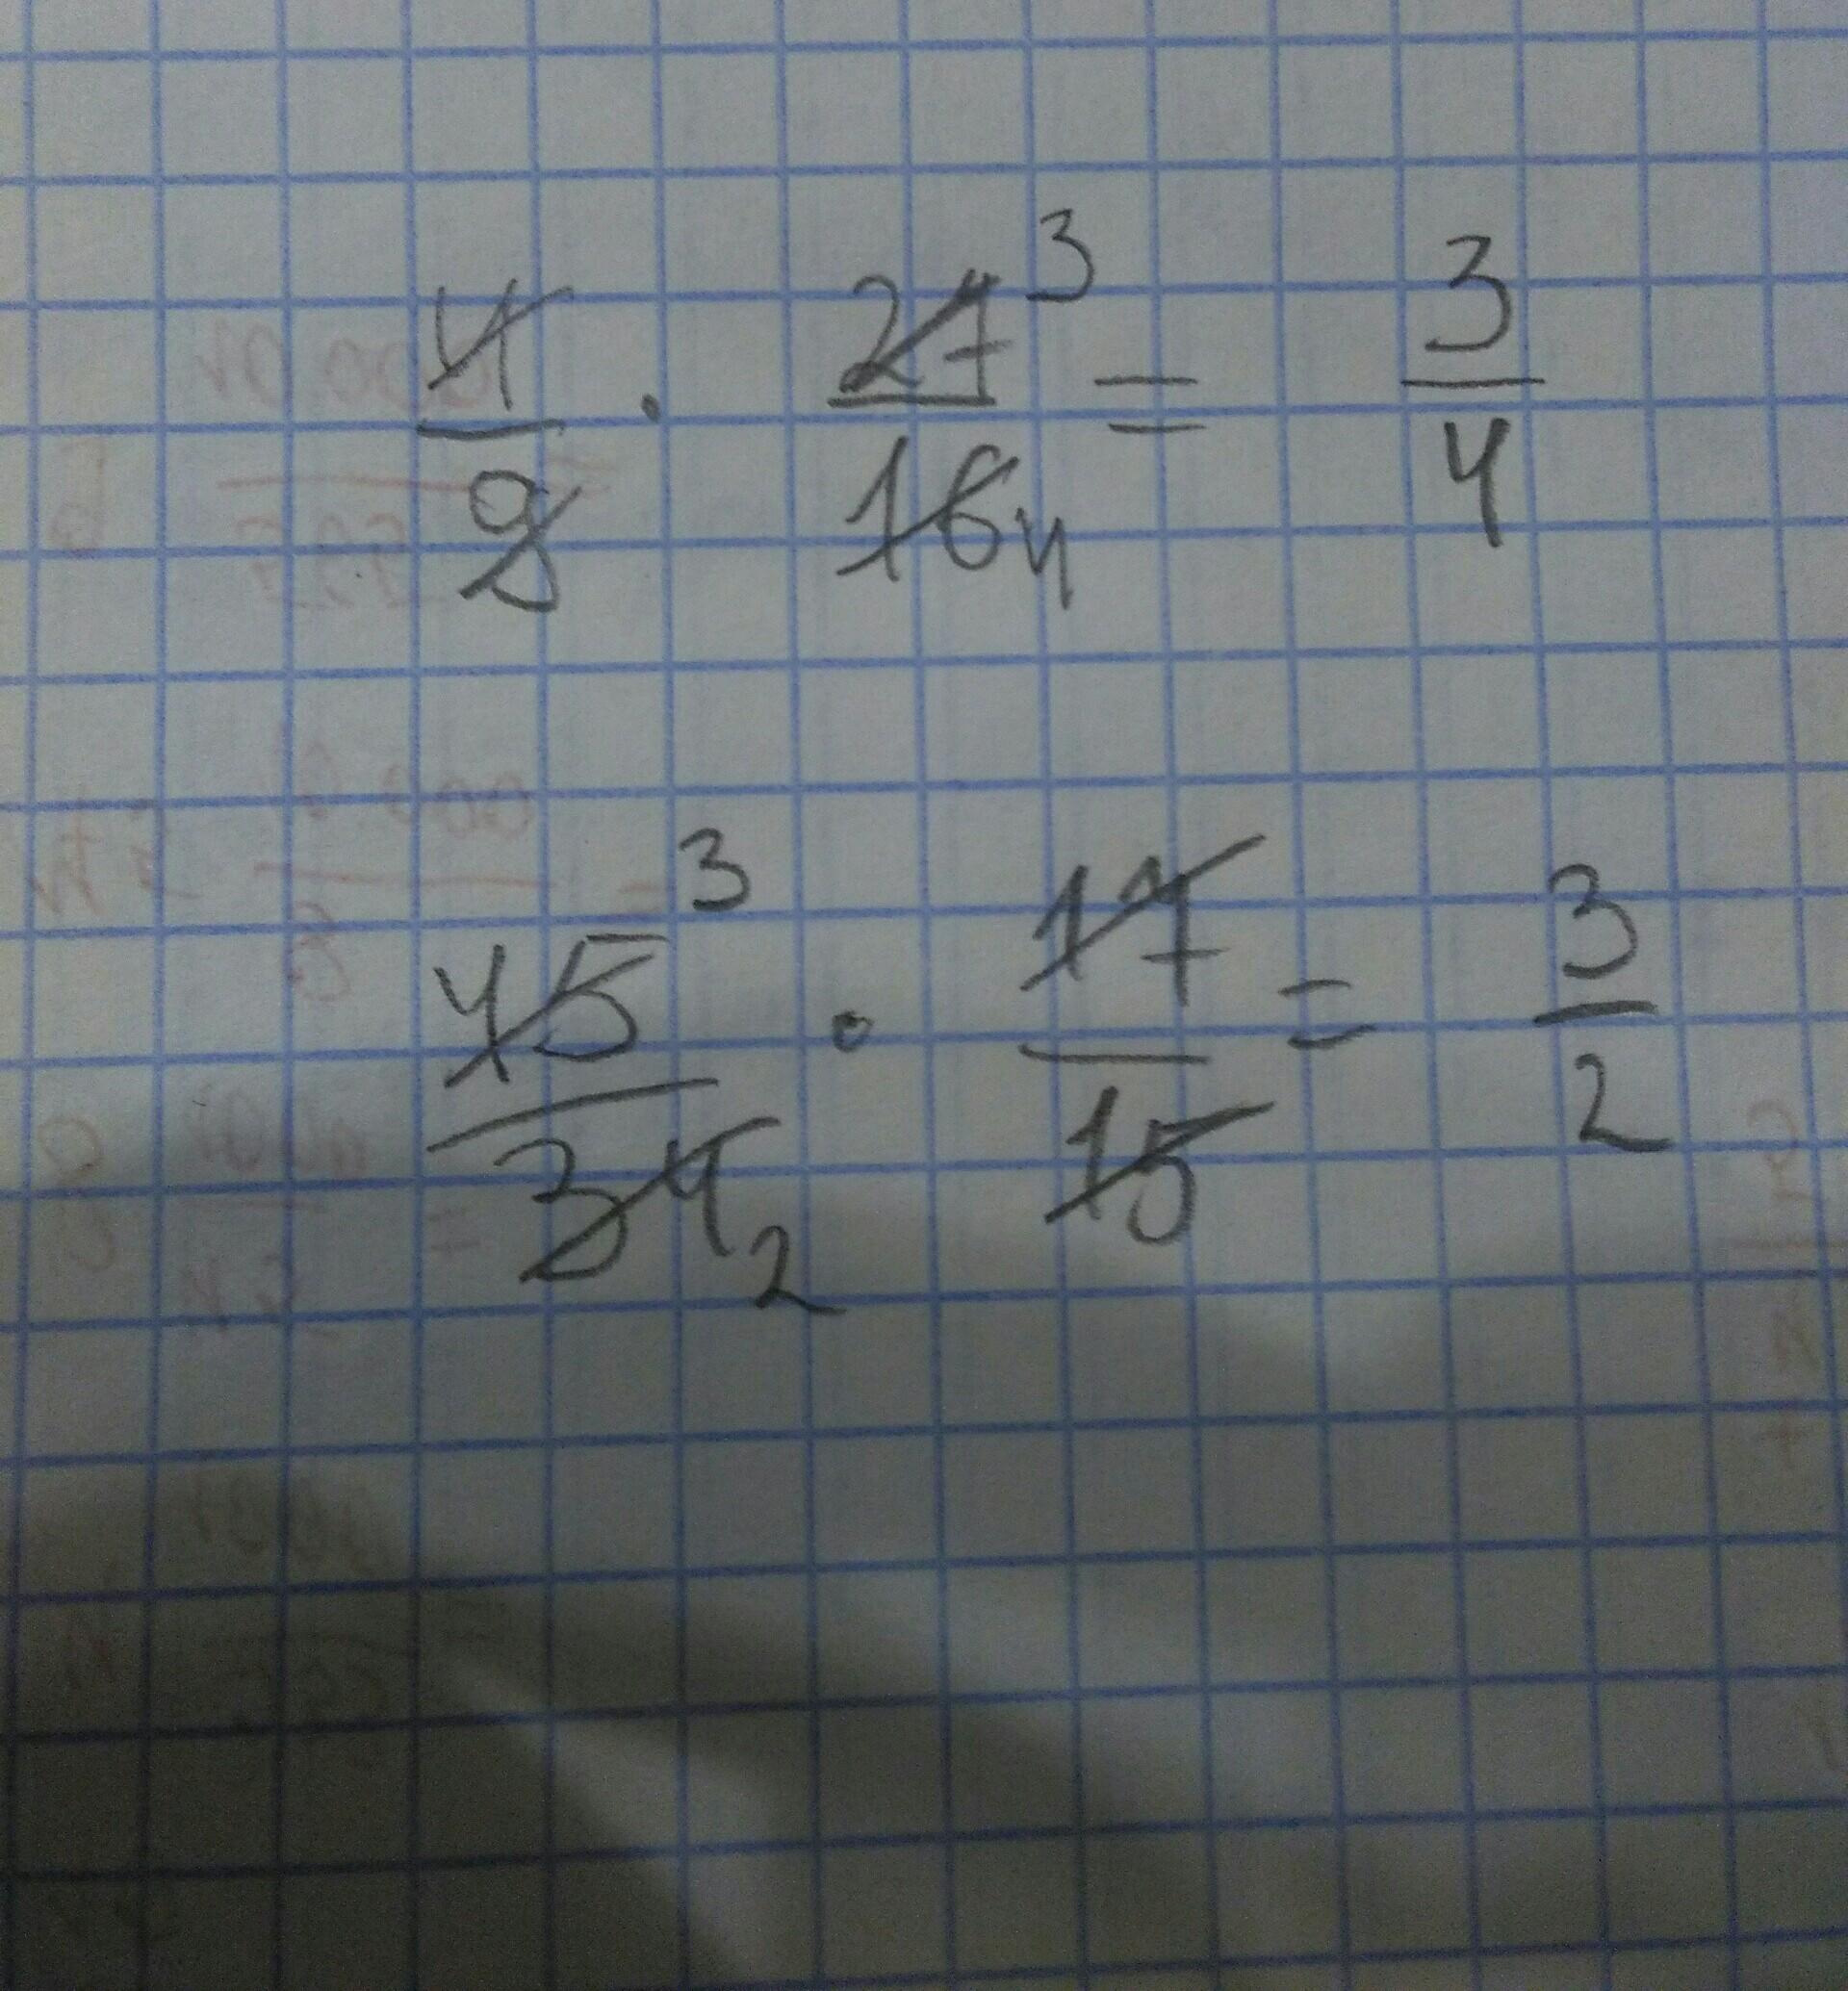 4/9 · 27³/16₄ = 3/4
45³/34₂ · 17/15 = 3/2